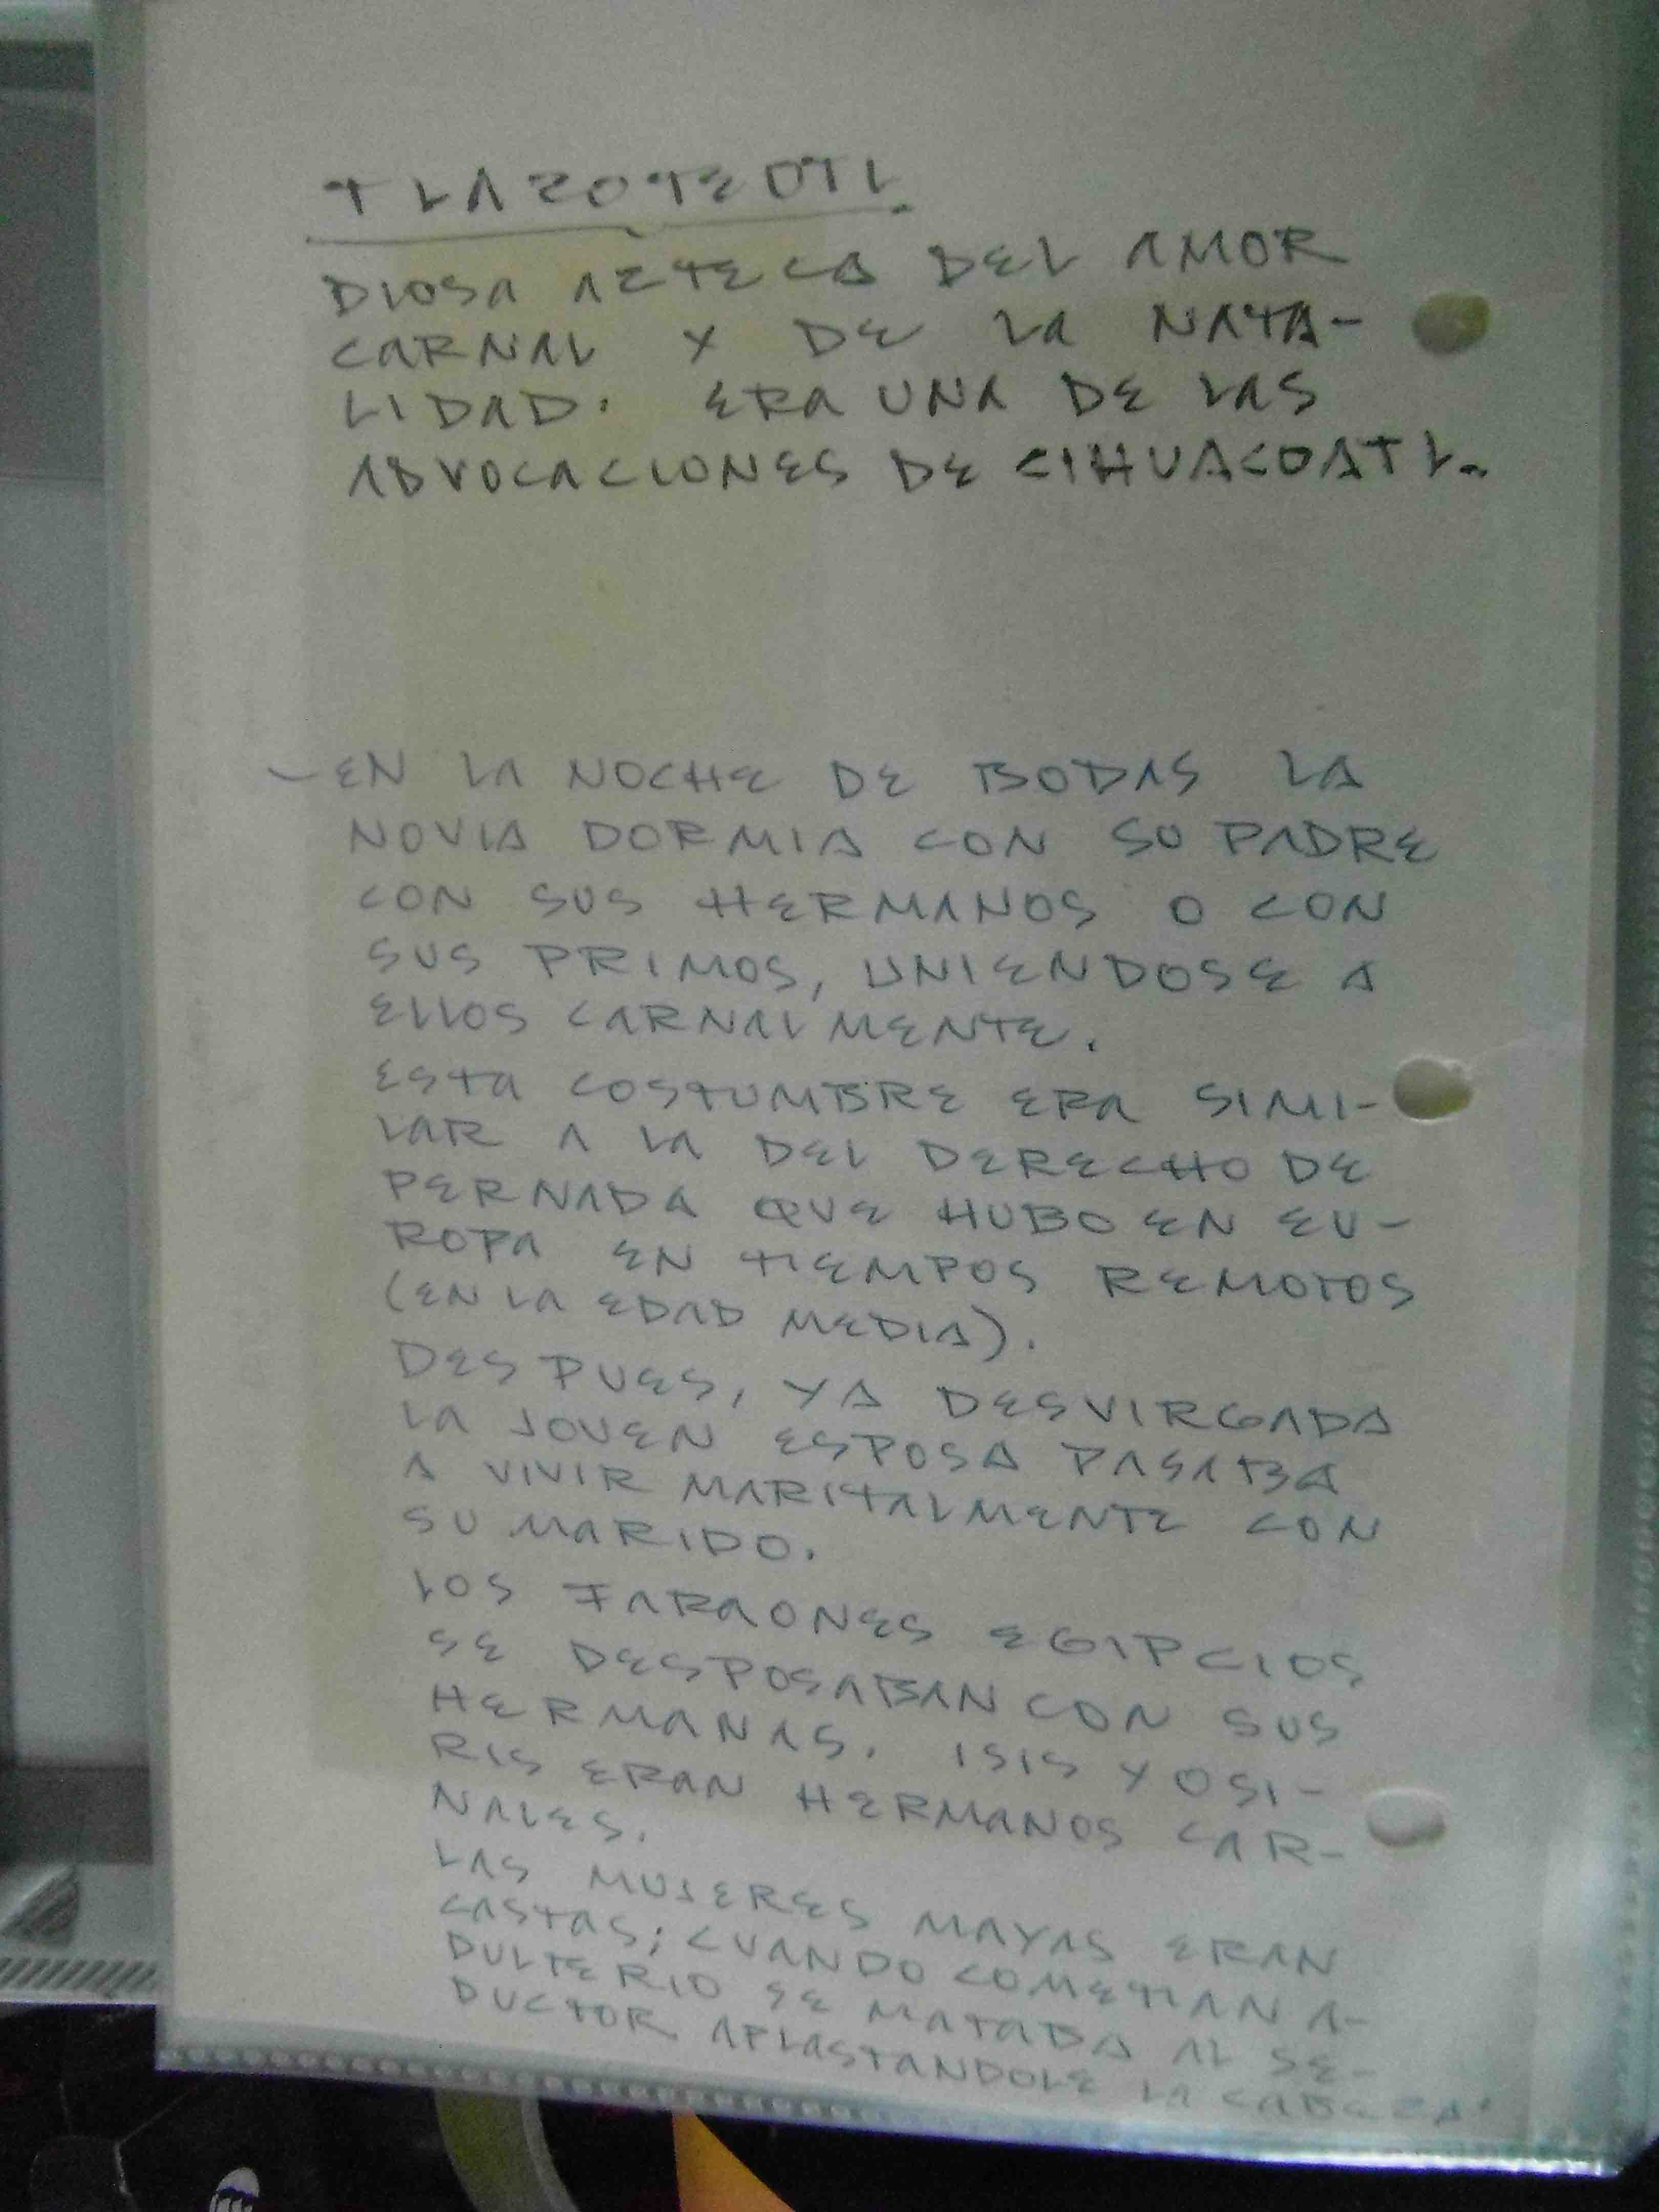 TLAZOTEOTL.
DIOSA AZTECA DEL AMOR
CARNAL Y DE LA NATA-
LIDAD. ERA UNA DE LAS
ADVOCACIONES DE CIHUACOATL.
- EN LA NOCHE DE BODAS LA
NOVIA DORMIA CON SU PADRE
CON SUS HERMANOS O CON
SUS PRIMOS, UNIENDOSE A
ELLOS CARNALMENTE.
ESTA COSTUMBRE ERA SIMI-
LAR A LA DEL DERECHO DE
PERNADA QUE HUBO EN EU-
ROPA EN TIEMPOS REMOTOS
(EN LA EDAD MEDIA).
DESPUES, YA DESVIRGADA
LA JOVEN ESPOSA PASABA
A VIVIR MARITALMENTE CON
SU MARIDO.
LOS FARAONES EGIPCIOS
SE DESPOSABAN CON SUS
HERMANAS. ISIS Y OSI-
RIS ERAN HERMANOS CAR-
NALES.
LAS MUJERES MAYAS ERAN
CASTAS; CUANDO COMETIAN A-
DULTERIO SE MATABA AL SE-
DUCTOR APLASTANDOLE LA CABEZA.